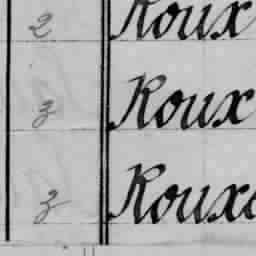 2 Roux
3 Roux
3 Roux